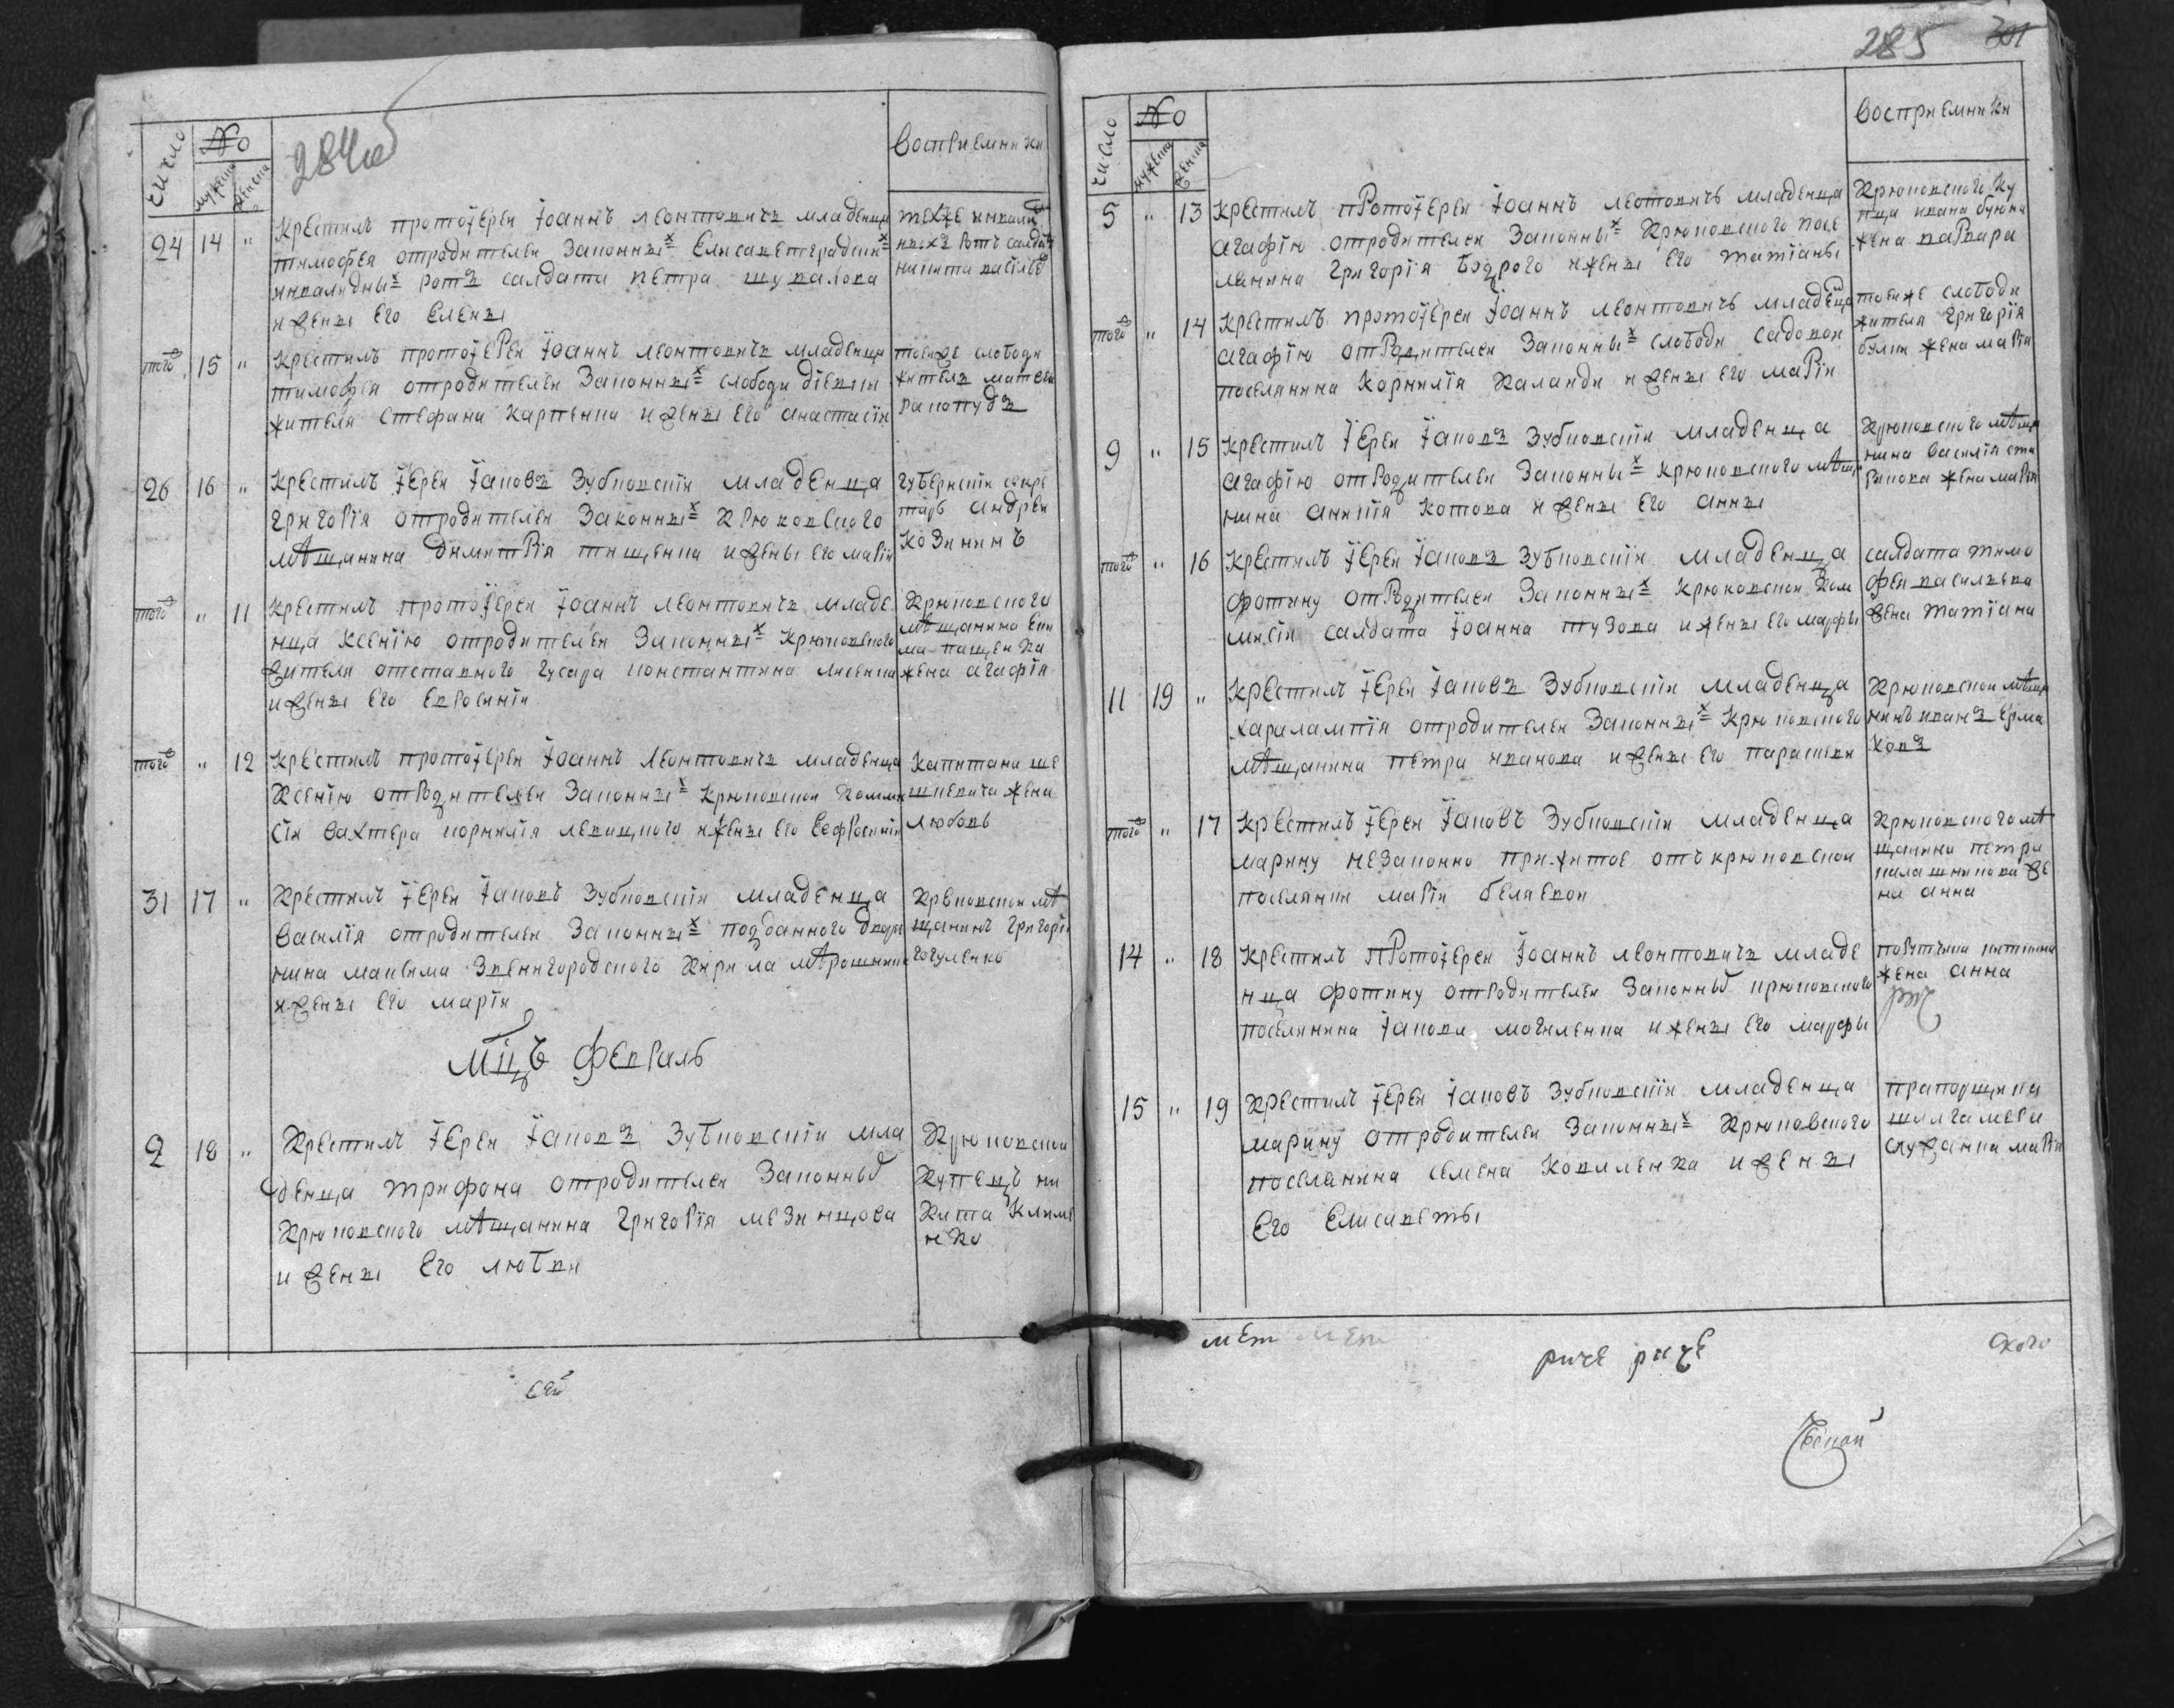 284об
число № мужеска женска
Восприемники
24 14 " Крестилъ протоіерей Іоаннъ Леонтовичъ младенца
тимофея отродителей Законныхъ Елисаветградскихъ
инвалидныхъ ротъ салдата петра шувалова
ижены Его Елены
техже инвалид
ныхъ ротъ салдатъ
никита васильевъ
того 15 " Крестилъ протоіерей Іоаннъ Леонтовичъ младенца
тимофея отродителей Законныхъ слободи діевки
жителя Стефана Карпенка ижены Его анастасіи
тоейже слободи
житель матвей
26 16 " Крестилъ Іерей Іаковъ Зубковскій младенца
григорія отродителей Законныхъ Крюковского
мѣщанина димитрія тищенка ижены Его маріи
губернскій секре
тарь андрей
Козининъ
того " 11 Крестилъ протоіерей Іоаннъ Леонтовичъ младе
нца Ксенію отродителей Законныхъ Крюковского
жителя отставного гусара константина лисенка
ижены Его Евросиніи
Крюковского
мѣщанина Еки
ма пащенка
жена агафія
того " 12 Крестилъ протоіерей Іоаннъ Леонтовичъ младенца
Ксенію отродителей Законныхъ Крюковской Комми
сіи вахтера корнилія левицкого ижены Его Евфросиніи
Капитана ше
жена
любовь
31 17 " Крестилъ Іерей Іаковъ Зубковскій младенца
Василія отродителей Законныхъ подданного дворя
нина максима Звенигородского Кирила мѣрошника
ижены Его маріи
Крюковской мѣ
щанинъ григорій
гогуленко
Мцъ февраль
2 18 " Крестилъ Іерей Іаковъ Зубковскій мла
денца трифона отродителей Законныхъ
Крюковского мѣщанина григорія мезинцова
ижены Его любви
Крюковской
Купецъ ни
Кита Климе
нко
сей
285 301
число № мужеска женска
Восприемники
5 " 13 Крестилъ протоіерей Іоаннъ леонтовичъ младенца
агафію отродителей Законныхъ Крюковского посе
лянина григорія бодрого ижены Его татіаны
Крюковского Ку
пца ивана
жена варвара
того " 14 Крестилъ протоіерей Іоаннъ леонтовичъ младенца
агафію отродителей Законныхъ слободи садовой
поселянина Корнилія Каланди ижены Его маріи
тоейже слободи
жителя григорія
жена марія
9 " 15 Крестилъ Іерей Іаковъ Зубковскій младенца
агафію отродителей Законныхъ крюковского мѣща
нина Котова ижены Его анны
Крюковского мѣща
нина Василія
жена марія
того " 16 Крестилъ Іерей Іаковъ Зубковскій младенца
фотину отродителей Законныхъ Крюковской Ком
мисіи салдата Іоанна тузова ижены Его марфы
салдата тимо
фея васильева
жена татіана
11 19 " Крестилъ Іерей Іаковъ Зубковскій младенца
харалампія отродителей Законныхъ Крюковского
мѣщанина петра иванова ижены Его параскеви
Крюковской мѣща
нинъ иванъ Ерма
ковъ
того " 17 Крестилъ Іерей Іаковъ Зубковскій младенца
марину незаконно прижитое отъ крюковской
поселянки маріи беляевой
Крюковского мѣ
щанина петра
калашникова же
на анна
14 " 18 Крестилъ Протоіерей Іоаннъ леонтовичъ младе
нца фотину отродителей Законныхъ крюковского
поселянина Іакова могиленка ижены Его марфы
жена анна
15 " 19 Крестилъ Іерей Іаковъ Зубковскій младенца
марину отродителей Законныхъ Крюковского
поселянина семена Коваленка ижены
Его Елисаветы
прапорщика
служанка марія